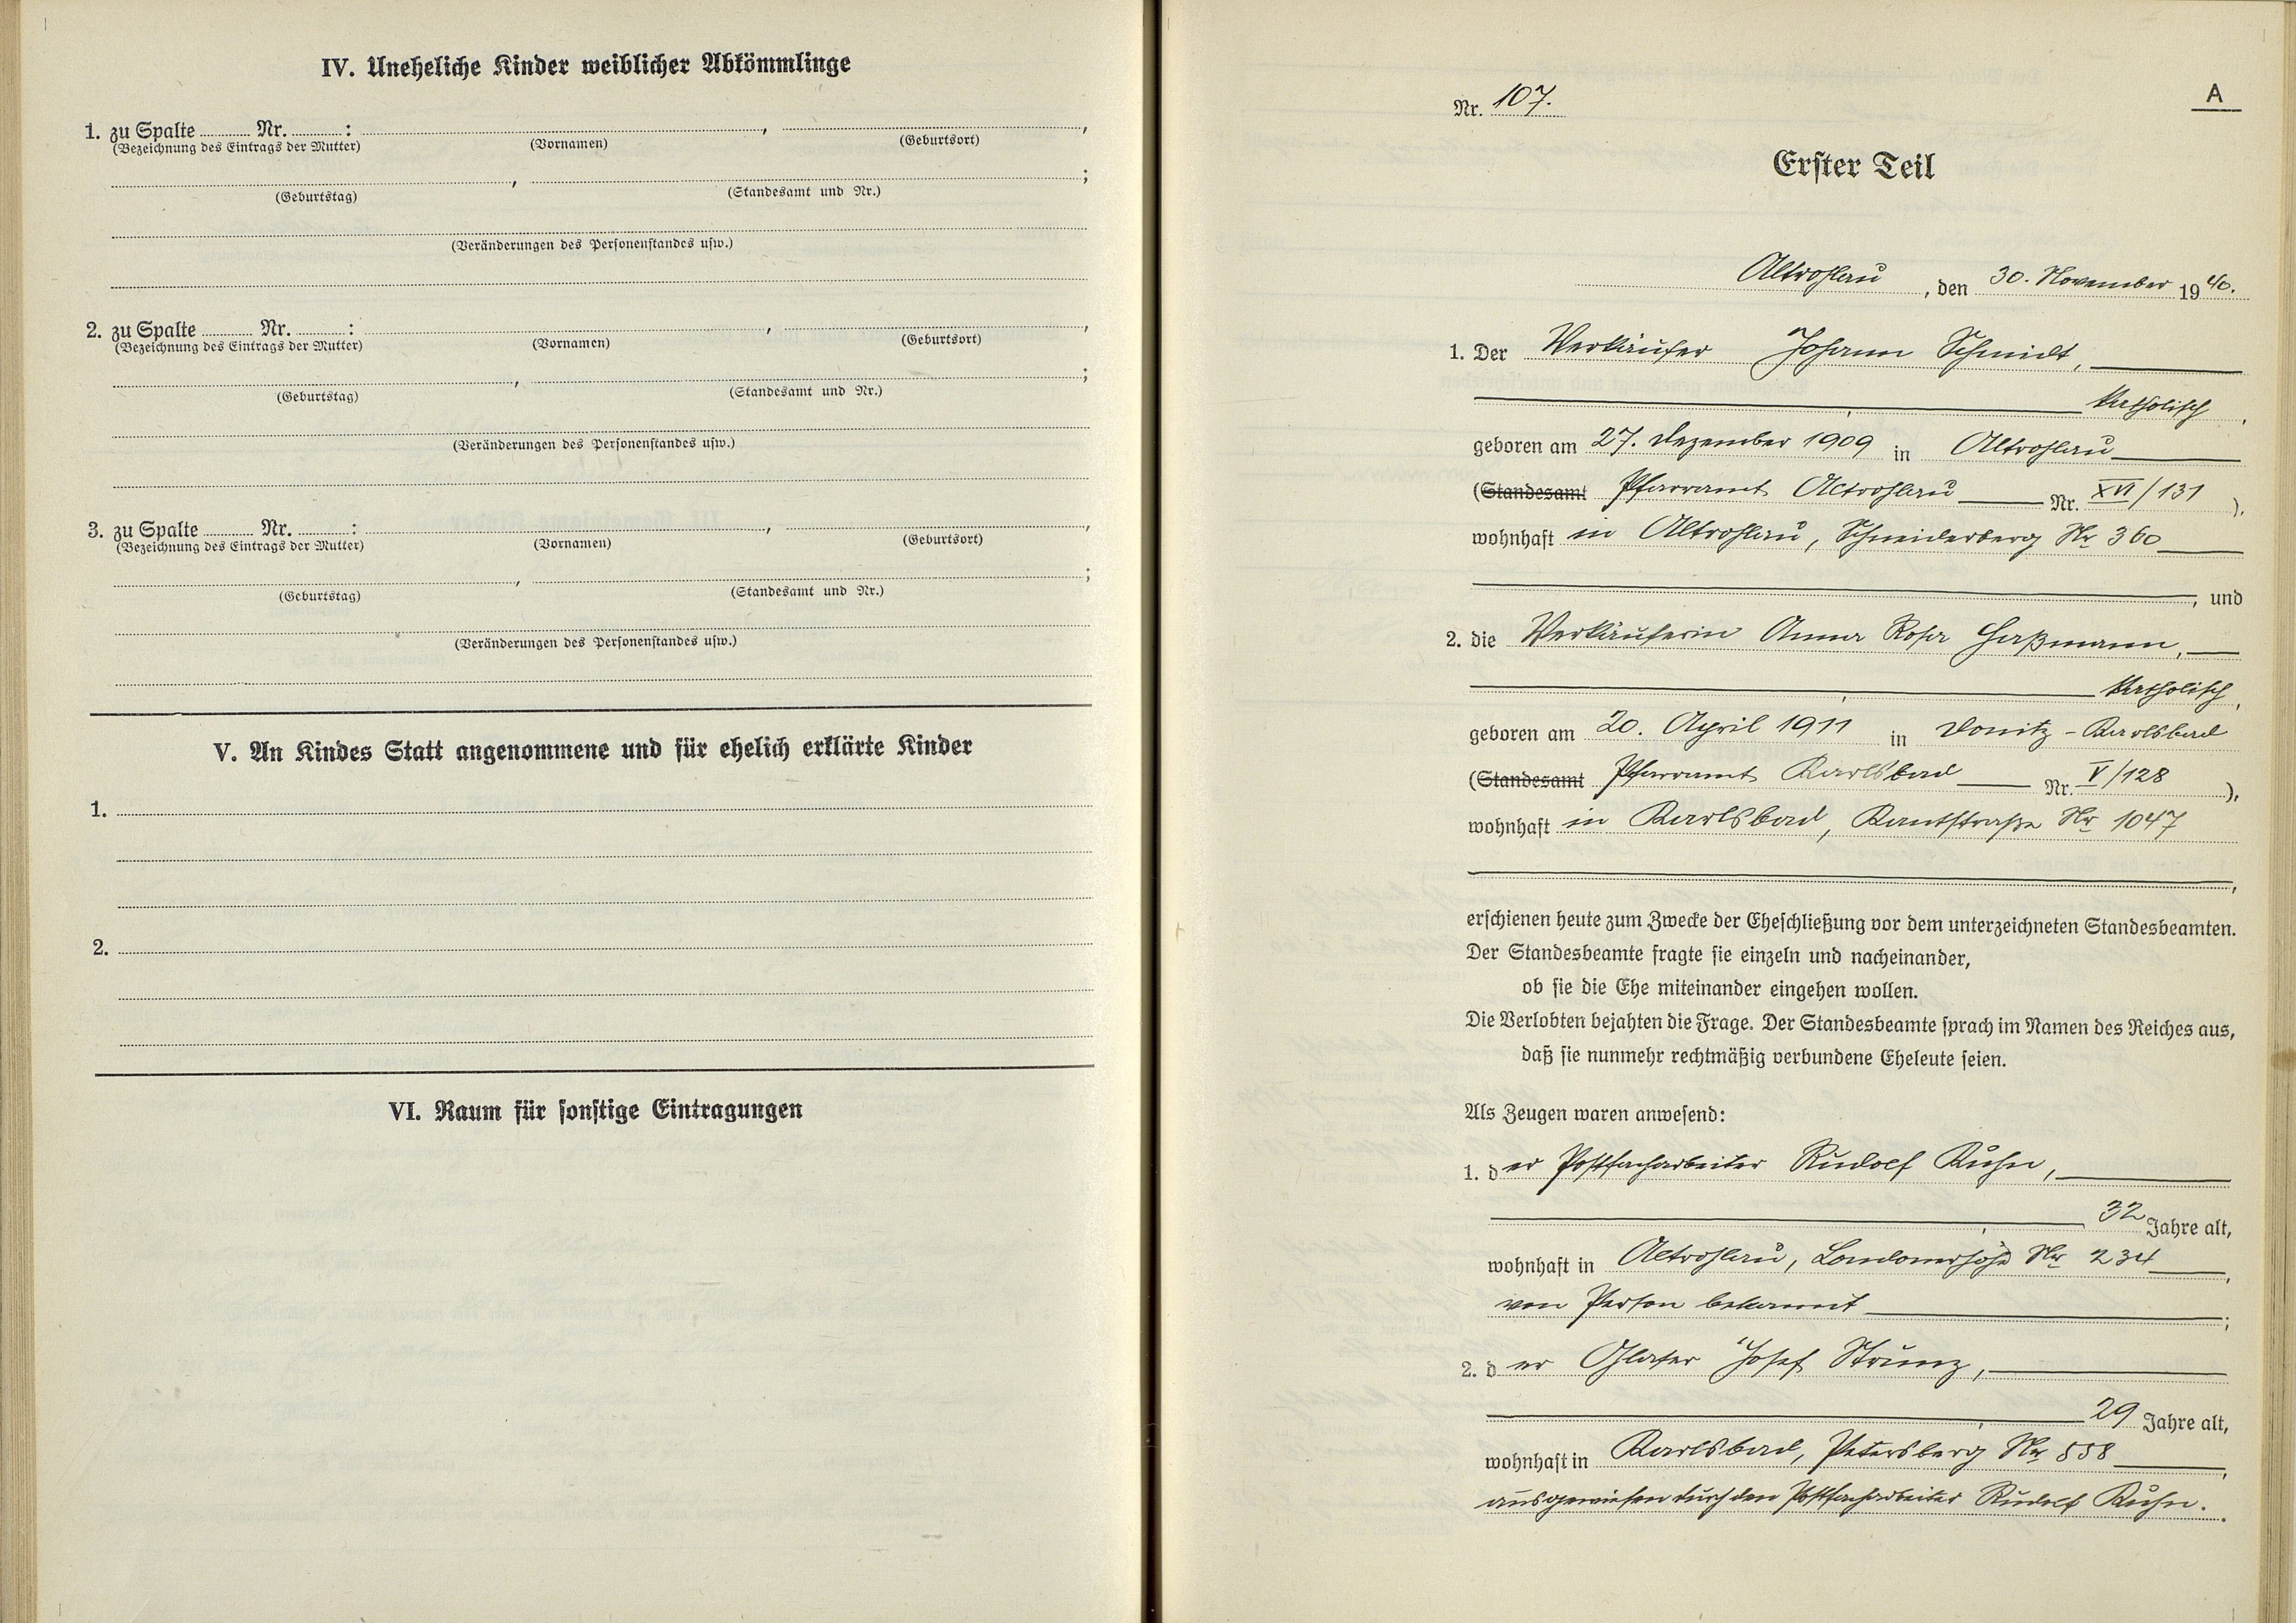 IV. Uneheliche Kinder weiblicher Abkömmlinge
1. zu Spalte Nr. : , ,
(Bezeichnung des Eintrags der Mutter) (Vornamen) (Geburtsort)
, ;
(Geburtstag) (Standesamt und Nr.)
(Veränderungen des Personenstandes usw.)
2. zu Spalte Nr. : , ,
(Bezeichnung des Eintrags der Mutter) (Vornamen) (Geburtsort)
, ;
(Geburtstag) (Standesamt und Nr.)
(Veränderungen des Personenstandes usw.)
3. zu Spalte Nr. : , ,
(Bezeichnung des Eintrags der Mutter) (Vornamen) (Geburtsort)
, ;
(Geburtstag) (Standesamt und Nr.)
(Veränderungen des Personenstandes usw.)
V. An Kindes Statt angenommene und für ehelich erklärte Kinder
1.
2.
VI. Raum für sonstige Eintragungen
A
Nr. 107.
Erster Teil
Altrohlau, den 30. November 1940.
1. Der Verkäufer Johann Schmidt,
katholisch,
geboren am 27. Dezember 1909 in Altrohlau
(Standesamt Pfarramt Altrohlau Nr. XVI/131),
wohnhaft in Altrohlau, Schneiderberg Nr 360
, und
2. die Verkäuferin Anna Rosa Haßmann,
katholisch,
geboren am 20. April 1911 in Donitz-Karlsbad
(Standesamt Pfarramt Karlsbad Nr. V/128),
wohnhaft in Karlsbad, Kantstraße Nr 1047
,
erschienen heute zum Zwecke der Eheschließung vor dem unterzeichneten Standesbeamten.
Der Standesbeamte fragte sie einzeln und nacheinander,
ob sie die Ehe miteinander eingehen wollen.
Die Verlobten bejahten die Frage. Der Standesbeamte sprach im Namen des Reiches aus,
daß sie nunmehr rechtmäßig verbundene Eheleute seien.
Als Zeugen waren anwesend:
1. der Postfacharbeiter Rudolf Kuhn,
32 Jahre alt,
wohnhaft in Altrohlau, Londonerhöhe Nr 234,
von Person bekannt;
2. der Glaser Josef Strunz,
29 Jahre alt,
wohnhaft in Karlsbad, Petersberg Nr 558,
ausgewiesen durch den Postfacharbeiter Rudolf Kuhn.